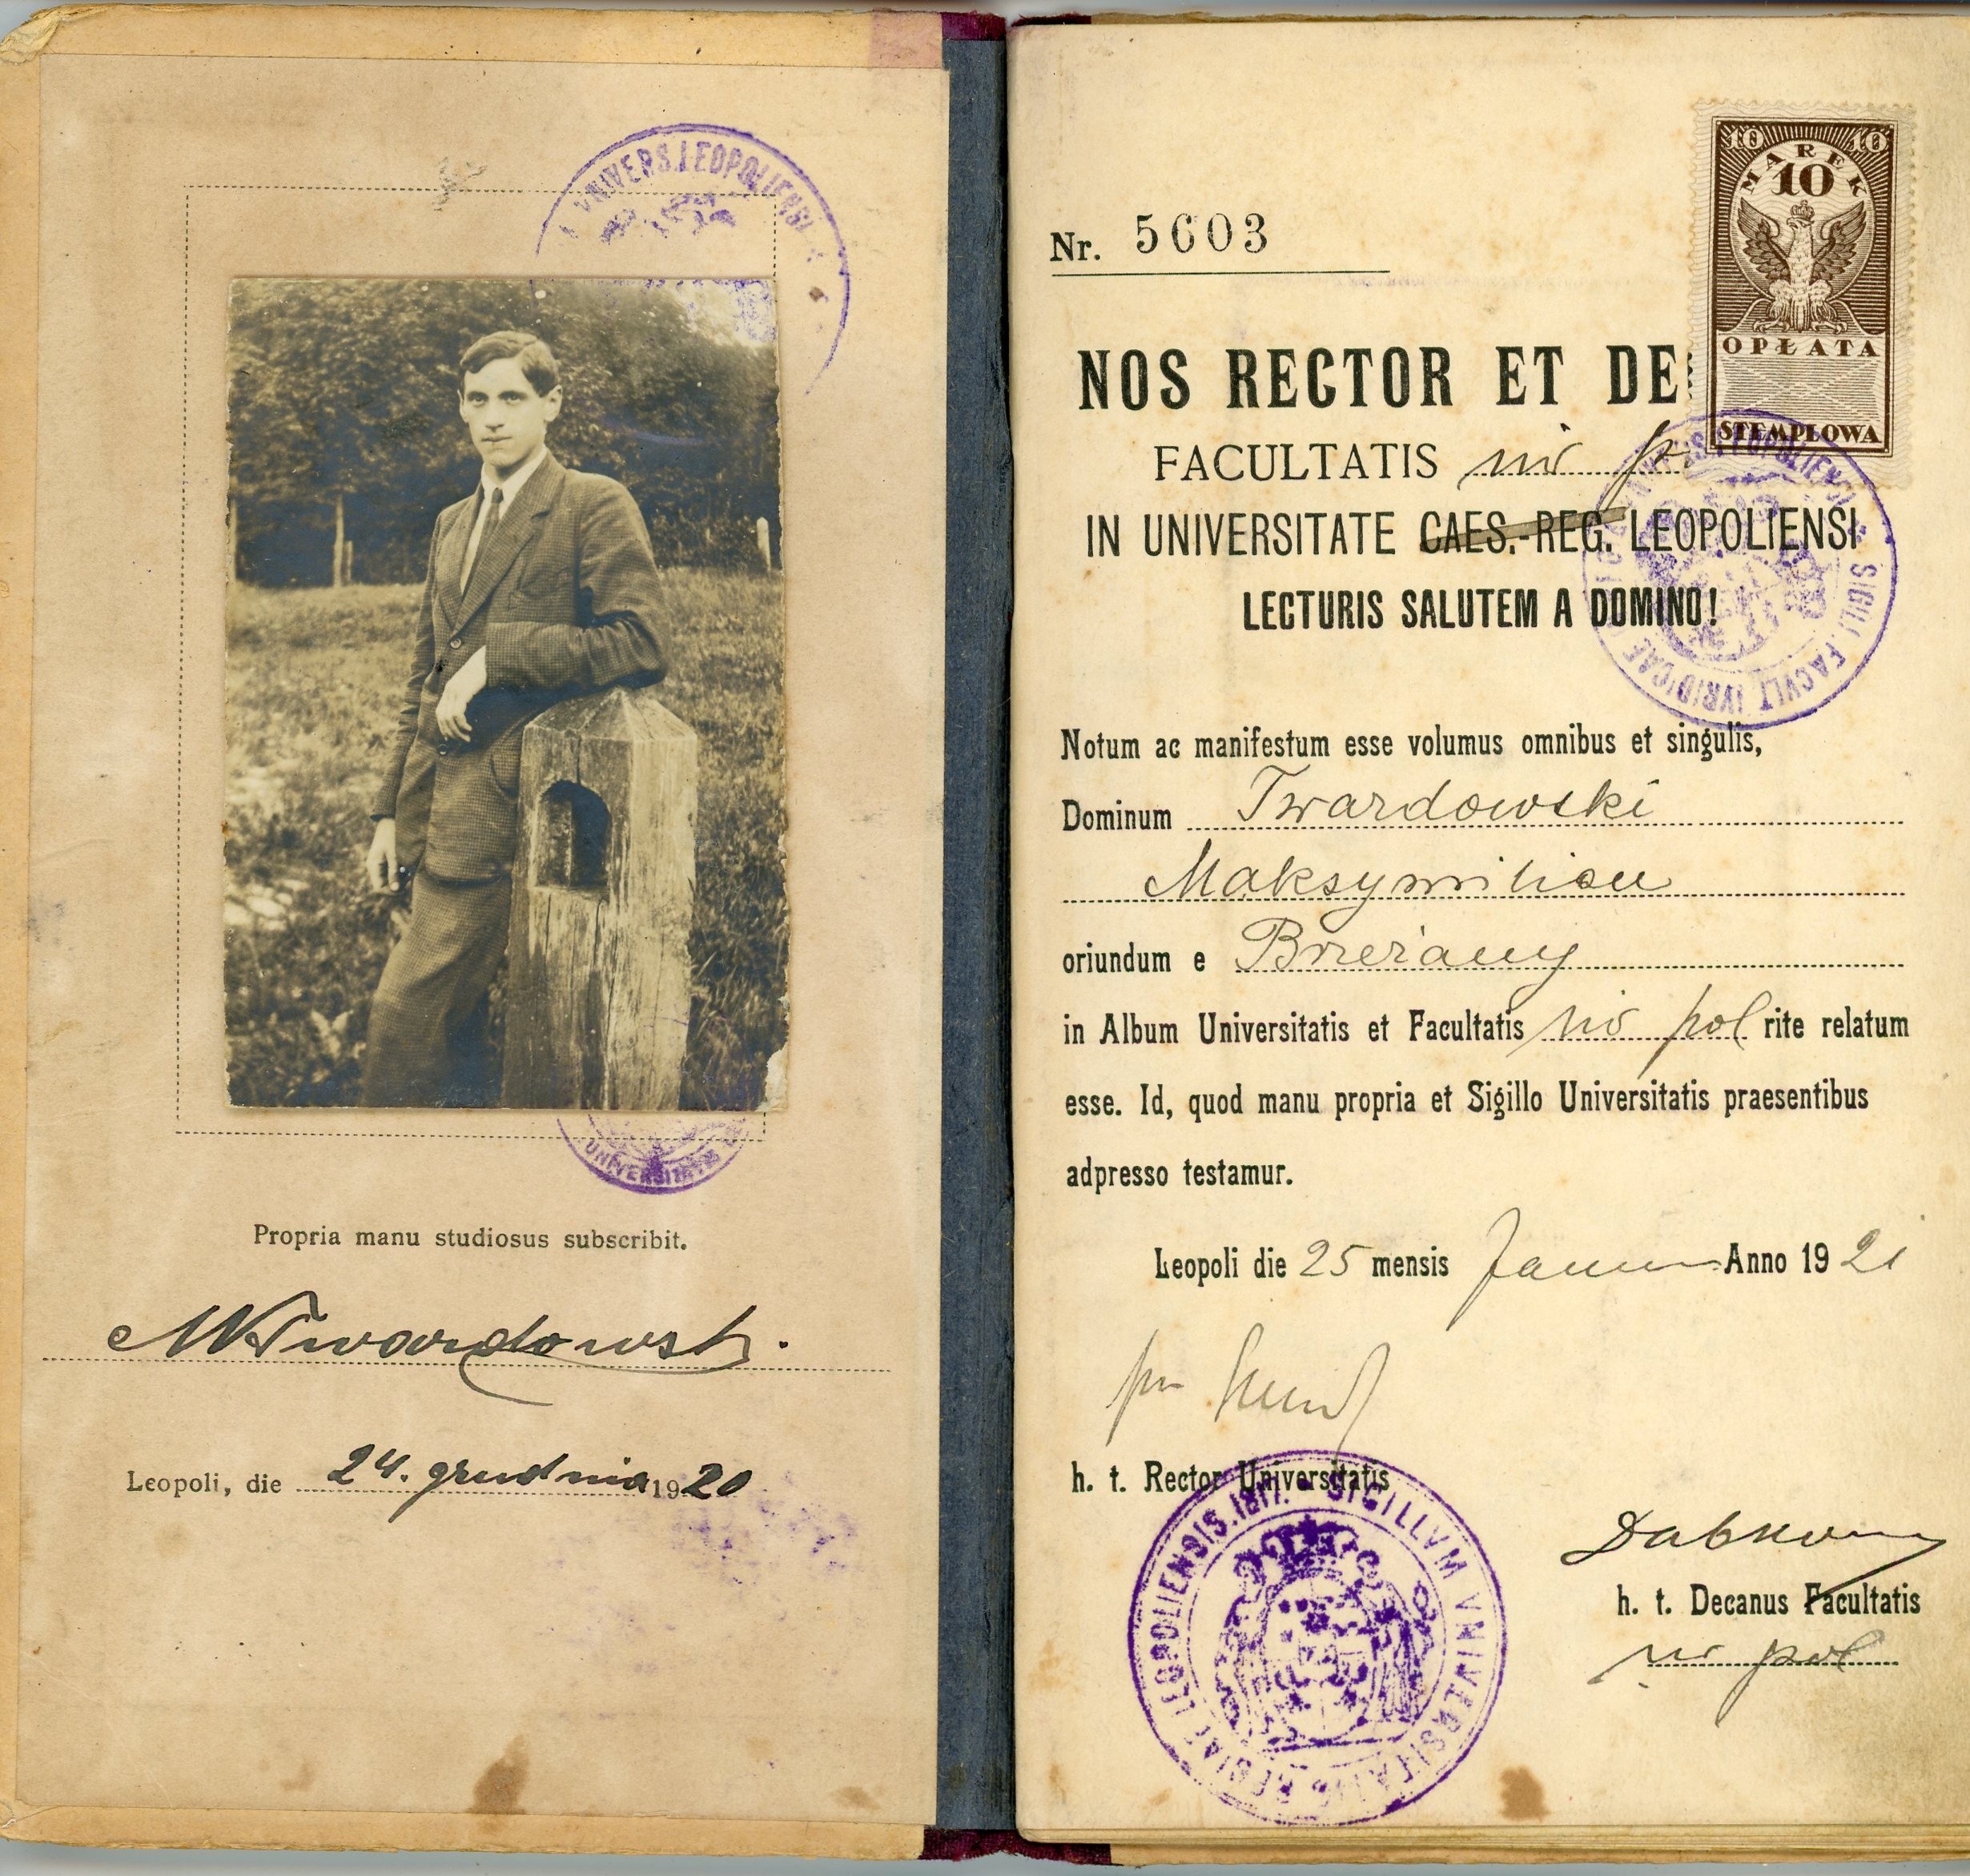 VNIVERS. LEOPOLIENSI
UNIVERSITATIS
Propria manu studiosus subscribit.
MTwardowski.
Leopoli, die 24. grudnia 1920
10 10
MAREK
10
OPŁATA
STEMPLOWA
Nr. 5603
NOS RECTOR ET DE
FACULTATIS
IN UNIVERSITATE CAES.-REG. LEOPOLIENSI
LECTURIS SALUTEM A DOMINO!
LEOPOLIENSI SIGILL FACVLT IVRIDICAE
Notum ac manifestum esse volumus omnibus et singulis,
Dominum Twardowski
Maksymilian
oriundum e Brzeżany
in Album Universitatis et Facultatis pol rite relatum
esse. Id, quod manu propria et Sigillo Universitatis praesentibus
adpresso testamur.
Leopoli die 25 mensis Anno 1921
h. t. Rector Universitatis
SIGILLVM VNIVERSITATIS LEOPOLIENSIS. 1817.
h. t. Decanus Facultatis
pol